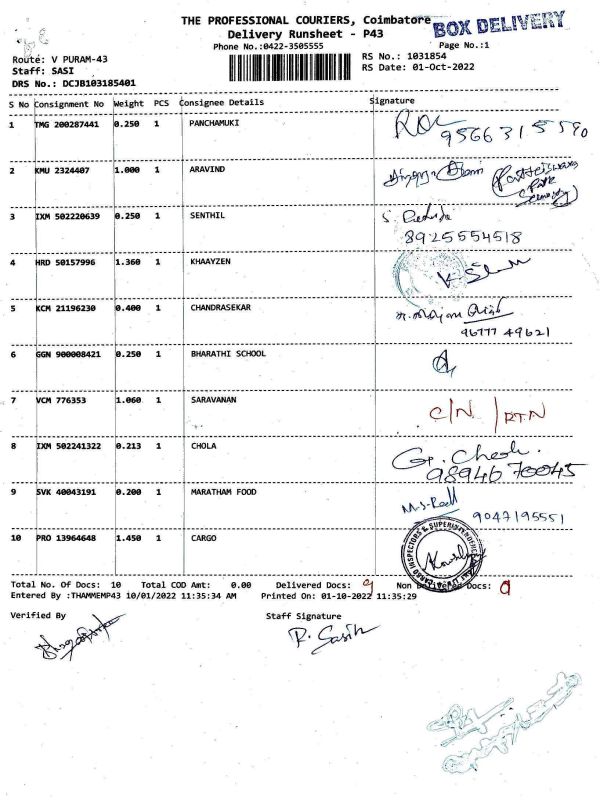 THE PROFESSIONAL COURIERS, Coimbatore
BOX DELIVERY
Delivery Runsheet - P43
Phone No.:0422-3505555
Page No.:1
Route: V PURAM-43
RS No.: 1031854
Staff: SASI
RS Date: 01-Oct-2022
DRS No.: DCJB103185401
S No Consignment No Weight PCS Consignee Details Signature
1 TMG 200287441 0.250 1 PANCHAMUKI
2 KMU 2324407 1.000 1 ARAVIND
3 IXM 502220639 0.250 1 SENTHIL
8925554518
4 HRD 50157996 1.360 1 KHAAYZEN
5 KCM 21196230 0.400 1 CHANDRASEKAR
96777 49621
6 GGN 900008421 0.250 1 BHARATHI SCHOOL
7 VCM 776353 1.060 1 SARAVANAN C/N / RTN
8 IXM 502241322 0.213 1 CHOLA
9894670045
9 SVK 40043191 0.200 1 MARATHAM FOOD
9047195551
10 PRO 13964648 1.450 1 CARGO
Total No. Of Docs: 10 Total COD Amt: 0.00 Delivered Docs: 9 Non Delivered Docs:
Entered By :THAMMEMP43 10/01/2022 11:35:34 AM Printed On: 01-10-2022 11:35:29
Verified By Staff Signature
R. Sasik